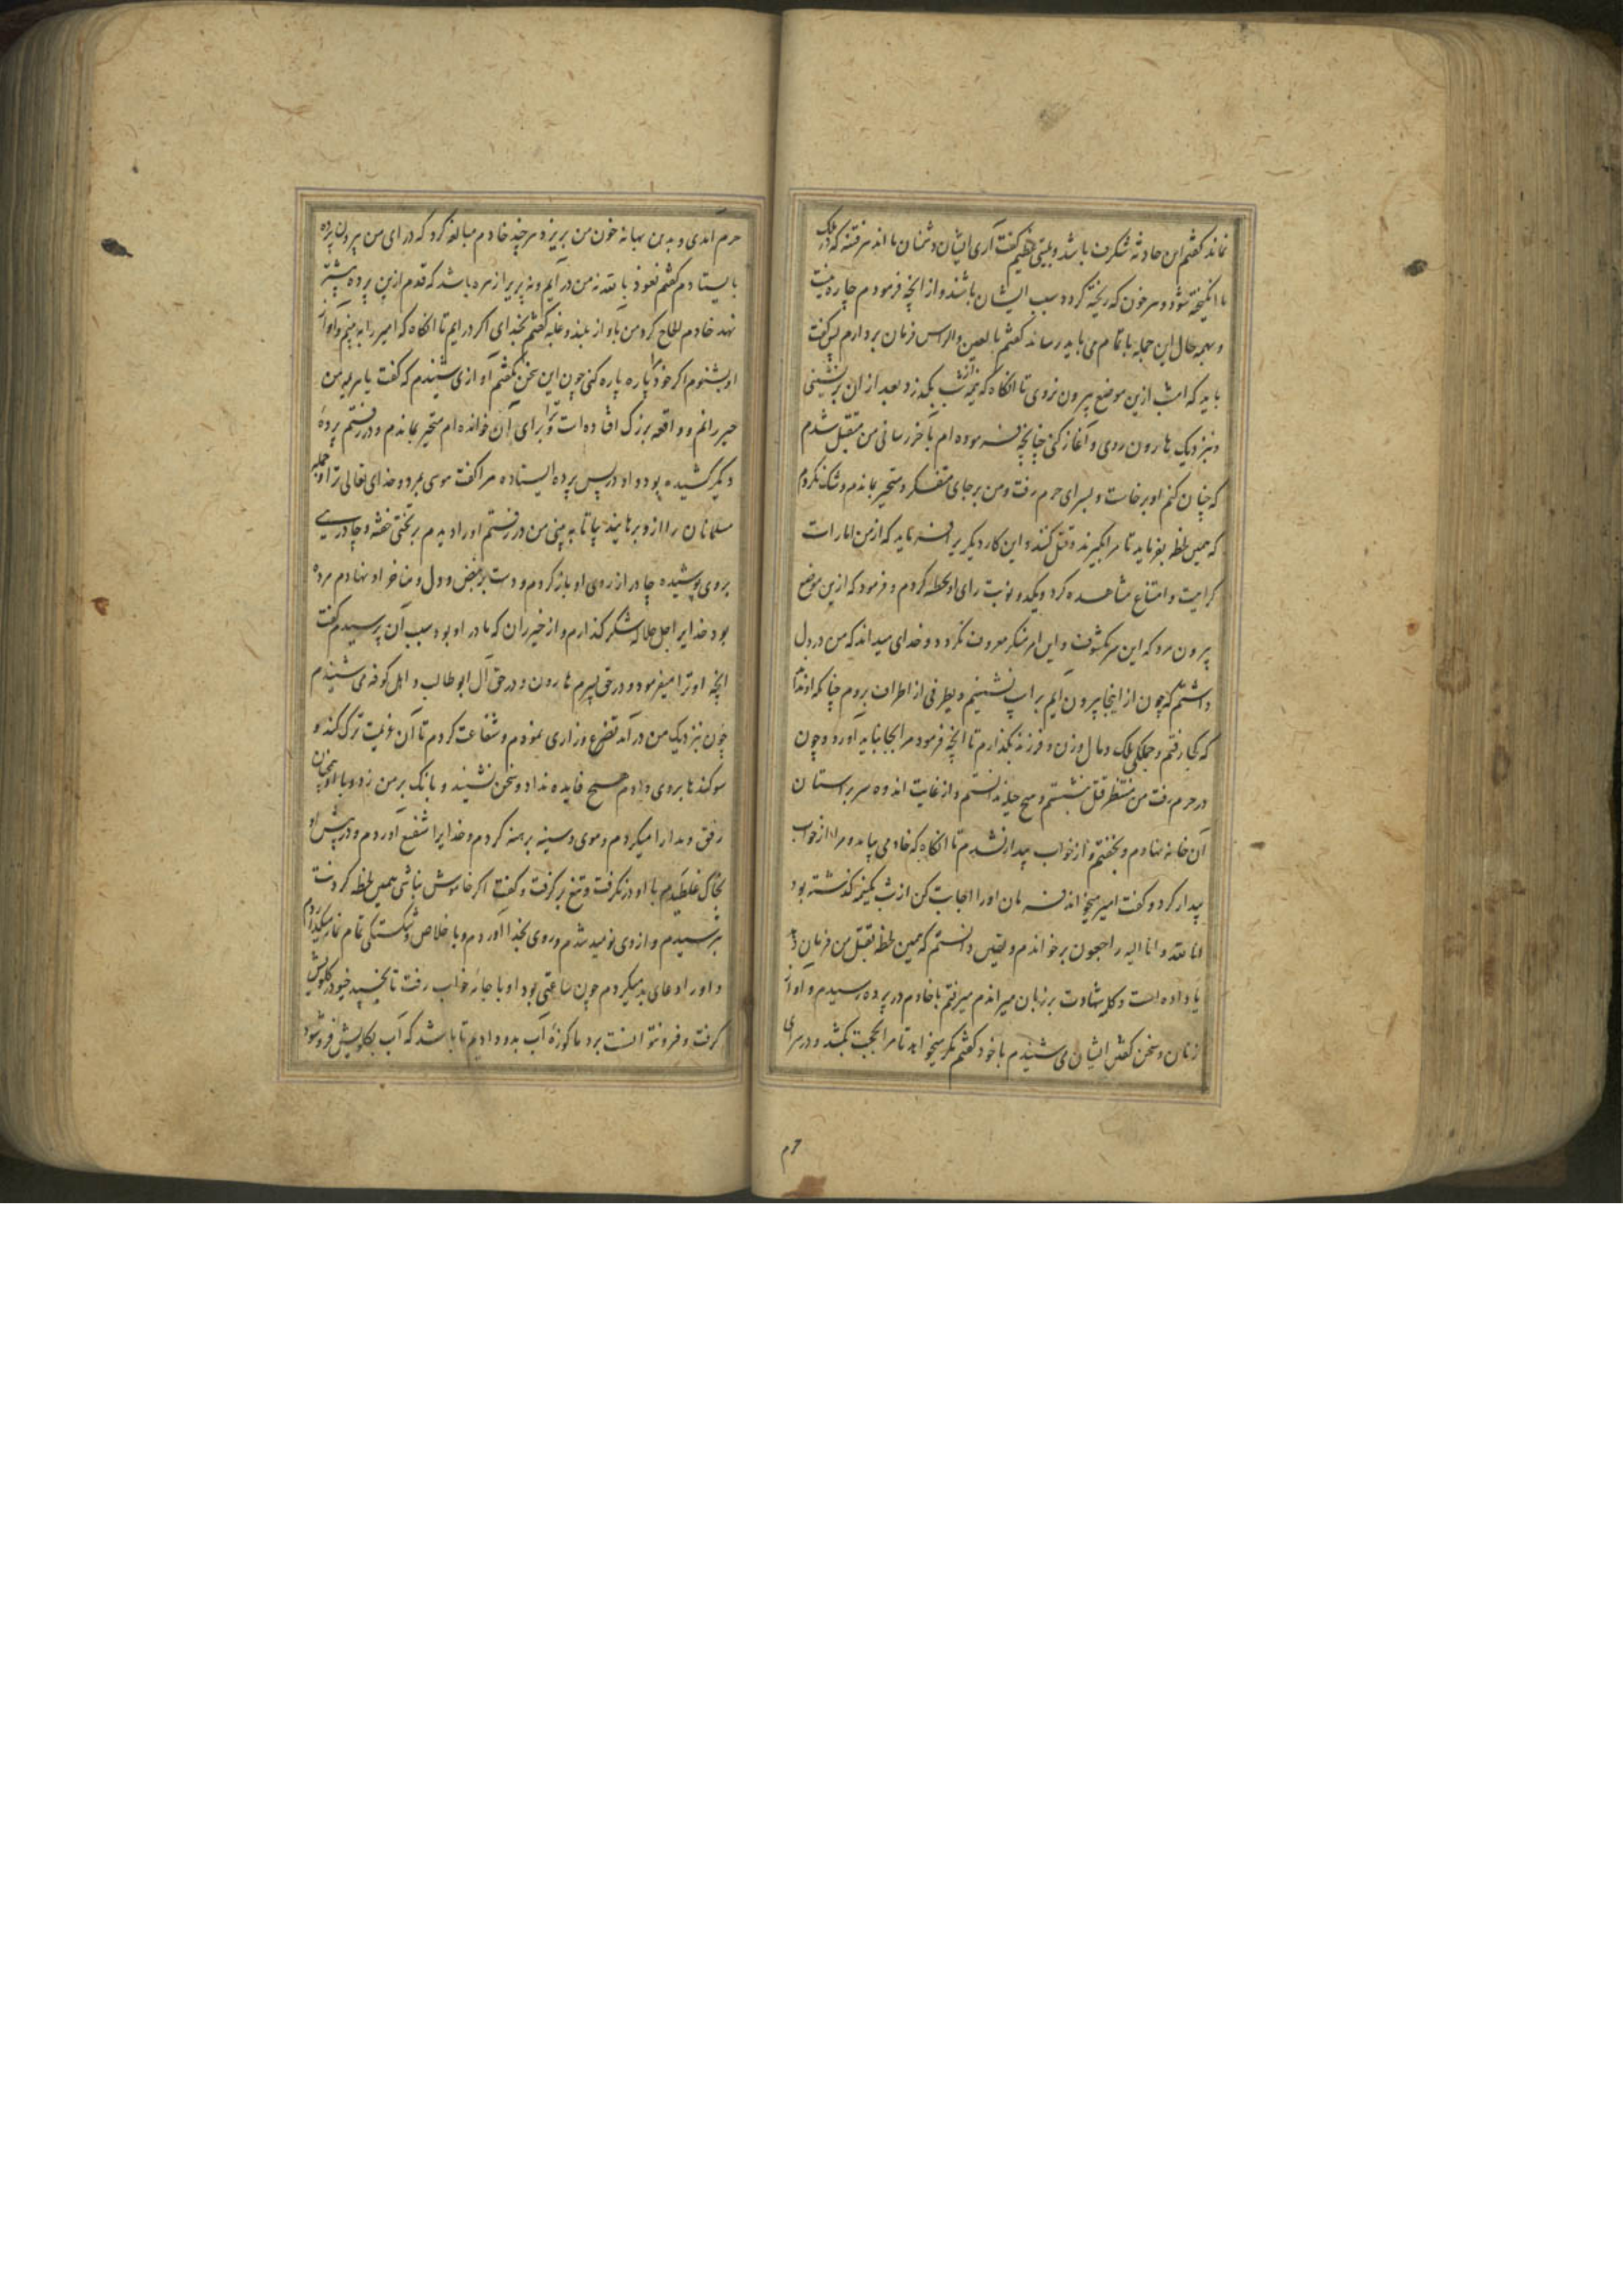 نماند کفتم این حادثه شکرف باشد و بلیتی عظیم کفت آری ایشان دشمنان ما اند هر فتنه که در ملک
ما انکیخته شود و هر خون که ریخته کردد سبب ایشان باشند و از انچه فرمودم چاره نیست
و بهمه حال این جمله باتمام می باید رساند کفتم بالعین والراس فرمان بردارم پس کفت
باید که امشب ازین موضع بیرون نروی تا انکاه که نیمه از شب بکذرد بعد از ان برنشینی
و بنزدیک هارون روی و آغاز کنی چنانچه فرموده ام بآخر رسانی من متقبل شدم
که چنان کنم او برخاست و بسرای حرم رفت و من بر جای متفکر و متحیر بماندم و شک نکردم
که همین لحظه بفرماید تا مرا بکیرند و قتل کنند و این کار دیکریرا فرماید که از من امارات
کراهیت و امتناع مشاهده کرد و یکدو نوبت رای او تخطئه کردم و فرمود که ازین موضع
بیرون مرو که این سر مکشوف و این امر منکر معروف نکردد و خدای میداند که من در دل
داشتم که چون از اینجا بیرون آیم بر اسپ نشینم و بطرفی از اطراف بروم چنانکه او نداند
که کجا رفتم و جملکی ملک و مال و زن و فرزند بکذارم تا انچه فرمود مرا بجا نباید آورد و چون
در حرم رفت من منتظر قتل بنشستم و هیچ حیله ندانستم و از غایت اندوه سر بر استان
آن خانه نهادم و بخفتم و از خواب بیدار نشدم تا انکاه که خادمی بیامد و مرا از خواب
بیدار کرد و کفت امیر میخواند فرمان او را اجابت کن از شب نیمه کذشته بود
انا لله و انا الیه راجعون برخواندم و یقین دانستم که همین لحظه بقتل من فرمان دهد
یا داده است و کلمه شهادت بر زبان میراندم میرفتم با خادم در پرده رسیدم و آواز
زنان و سخن کفتن ایشان می شنیدم با خود کفتم مکر میخواهد تا مرا بحجت بکشد و در سرای
حرم
حرم آمدی و بدین بهانه خون من بریزد هرچند خادم مبالغه کرد که در آی من بیرون پرده
بایستادم کفتم نعوذ بالله نه من در آیم و نه پریرا زهره باشد که قدم ازین پرده پیشتر
نهد خادم الحاح کرد من بآواز بلند و غلبه کفتم بخدای اکر درایم تا انکاه که امیر را به بینم و آواز
او بشنوم اکر خود مرا پاره پاره کنی چون این سخن بکفتم آوازی شنیدم که کفت یا هرثمه من
خیزرانم و واقعه بزرک افتاده است و ترا برای آن خوانده ام متحیر بماندم و در رفتم پرده
دیکر کشیده بود و او در پس پرده ایستاده مرا کفت موسی بمرد و خدای تعالی ترا و جمله
مسلمانان را ازو برهانید بیا تا به بینی من در رفتم او را دیدم بر تختی خفته و چادری
بروی پوشیده چادر از روی او باز کردم و دست بر نبض و دل و مناخر او نهادم مرده
بود خدایرا جل جلاله شکر کذاردم و از خیزران که مادر او بود سبب آن پرسیدم کفت
انچه او ترا میفرمود در حق پسرم هارون و در حق آل ابو طالب و اهل کوفه می شنیدم
چون بنزدیک من درآمد تضرع و زاری نمودم و شفاعت کردم تا آن عزیمت ترک کند و
سوکندها بروی دادم هیچ فایده نداد و سخن نشنید و بانک بر من زد و با او همچنان
رفق و مدارا میکردم و موی و سینه برهنه کردم و خدایرا شفیع آوردم و در پیش او
بخاک غلطیدم با او در نکرفت و تیغ برکرفت و کفت اکر خاموش نباشی همین لحظه کردنت
بترسیدم و از وی نومید شدم و روی بخدا آوردم و با خلاص و شکستکی تمام نماز میکزاردم
و او را دعای بد میکردم چون ساعتی بود او با جامه خواب رفت تا بخسپد خیو در کلویش
کرفت و فرو نتوانست برد ما کوزه آب بدو دادیم تا باشد که آب بکلویش فرو شود